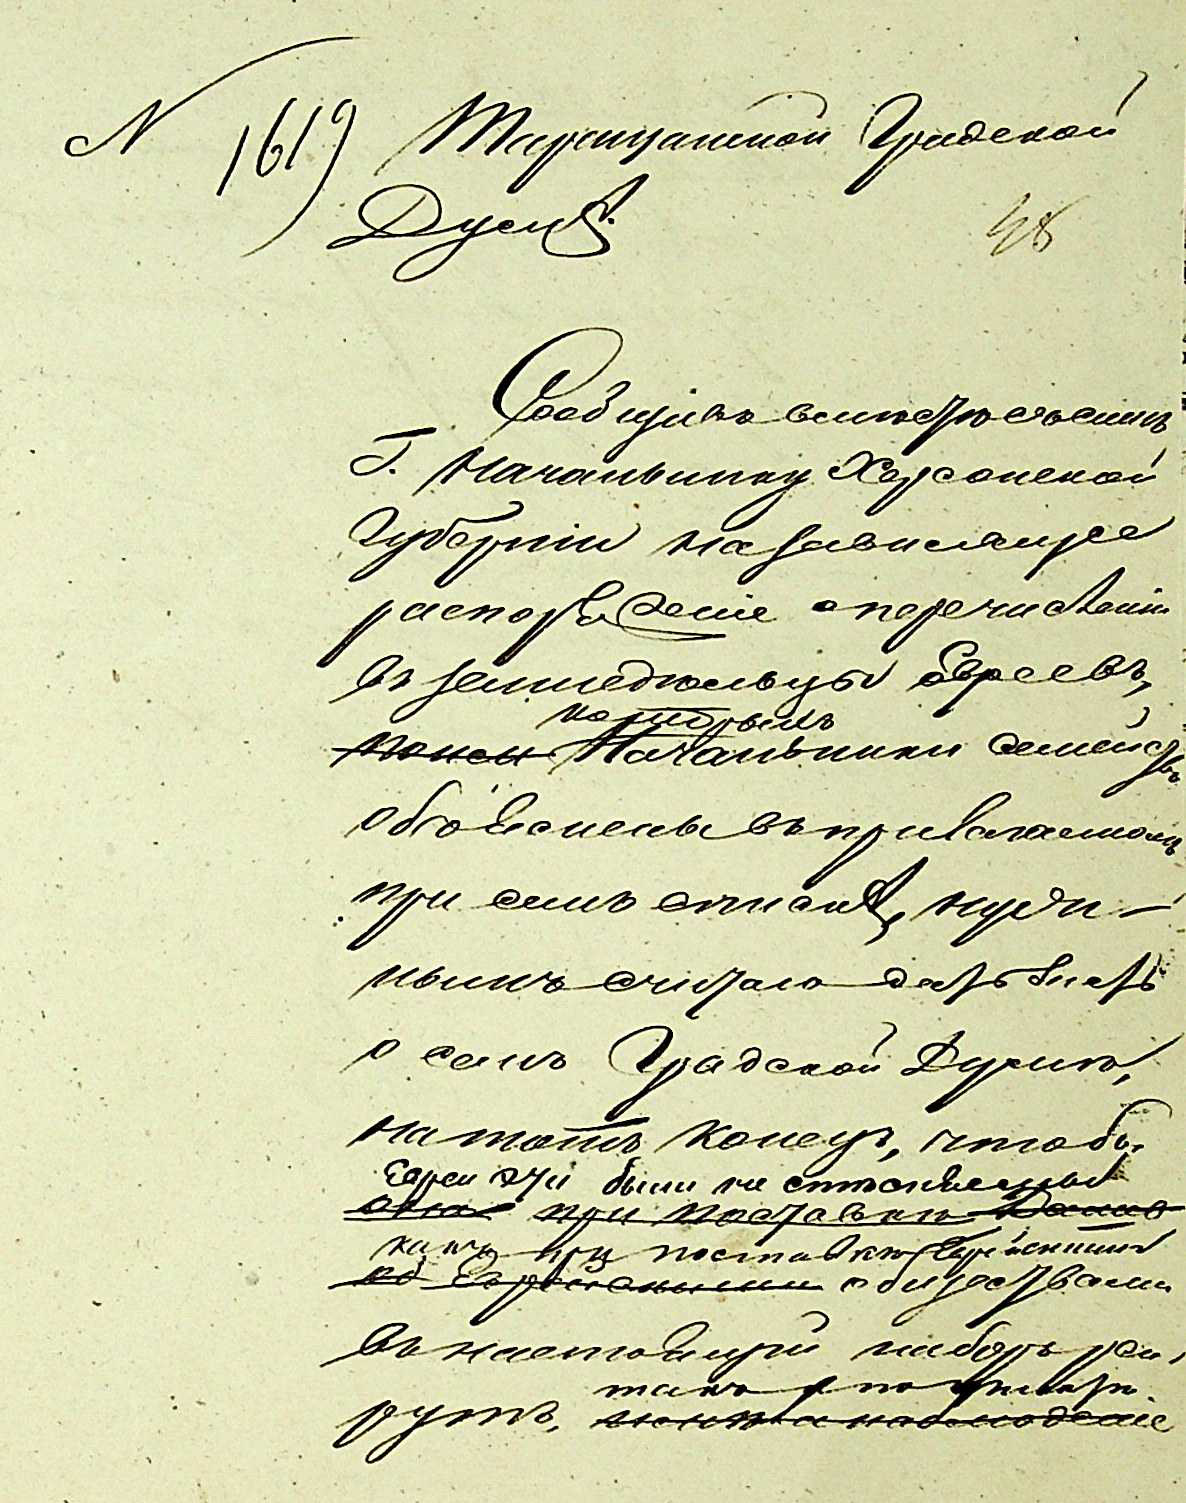 N 1619 Таращанской Градской
Думѣ.
48
Сообщивъ вмѣстѣ съ симъ
Г. Начальнику Херсонской
Губерніи на зависящее
распоряженіе о перечисленіи
въ земледѣльцы Евреевъ,
которыхъ
Начальники семействъ
объяснены въ прилагаемомъ
при семъ спискѣ, нуж-
нымъ считаю дать знать
о семъ Градской Думѣ,
на тотъ конецъ, чтобы
Евреи эти были не
они при поставкѣ
какъ при поставкѣ Еврейскими
Еврейскими обществами
въ настоящій наборъ рек,
такъ и по
рутъ, наблюденіе